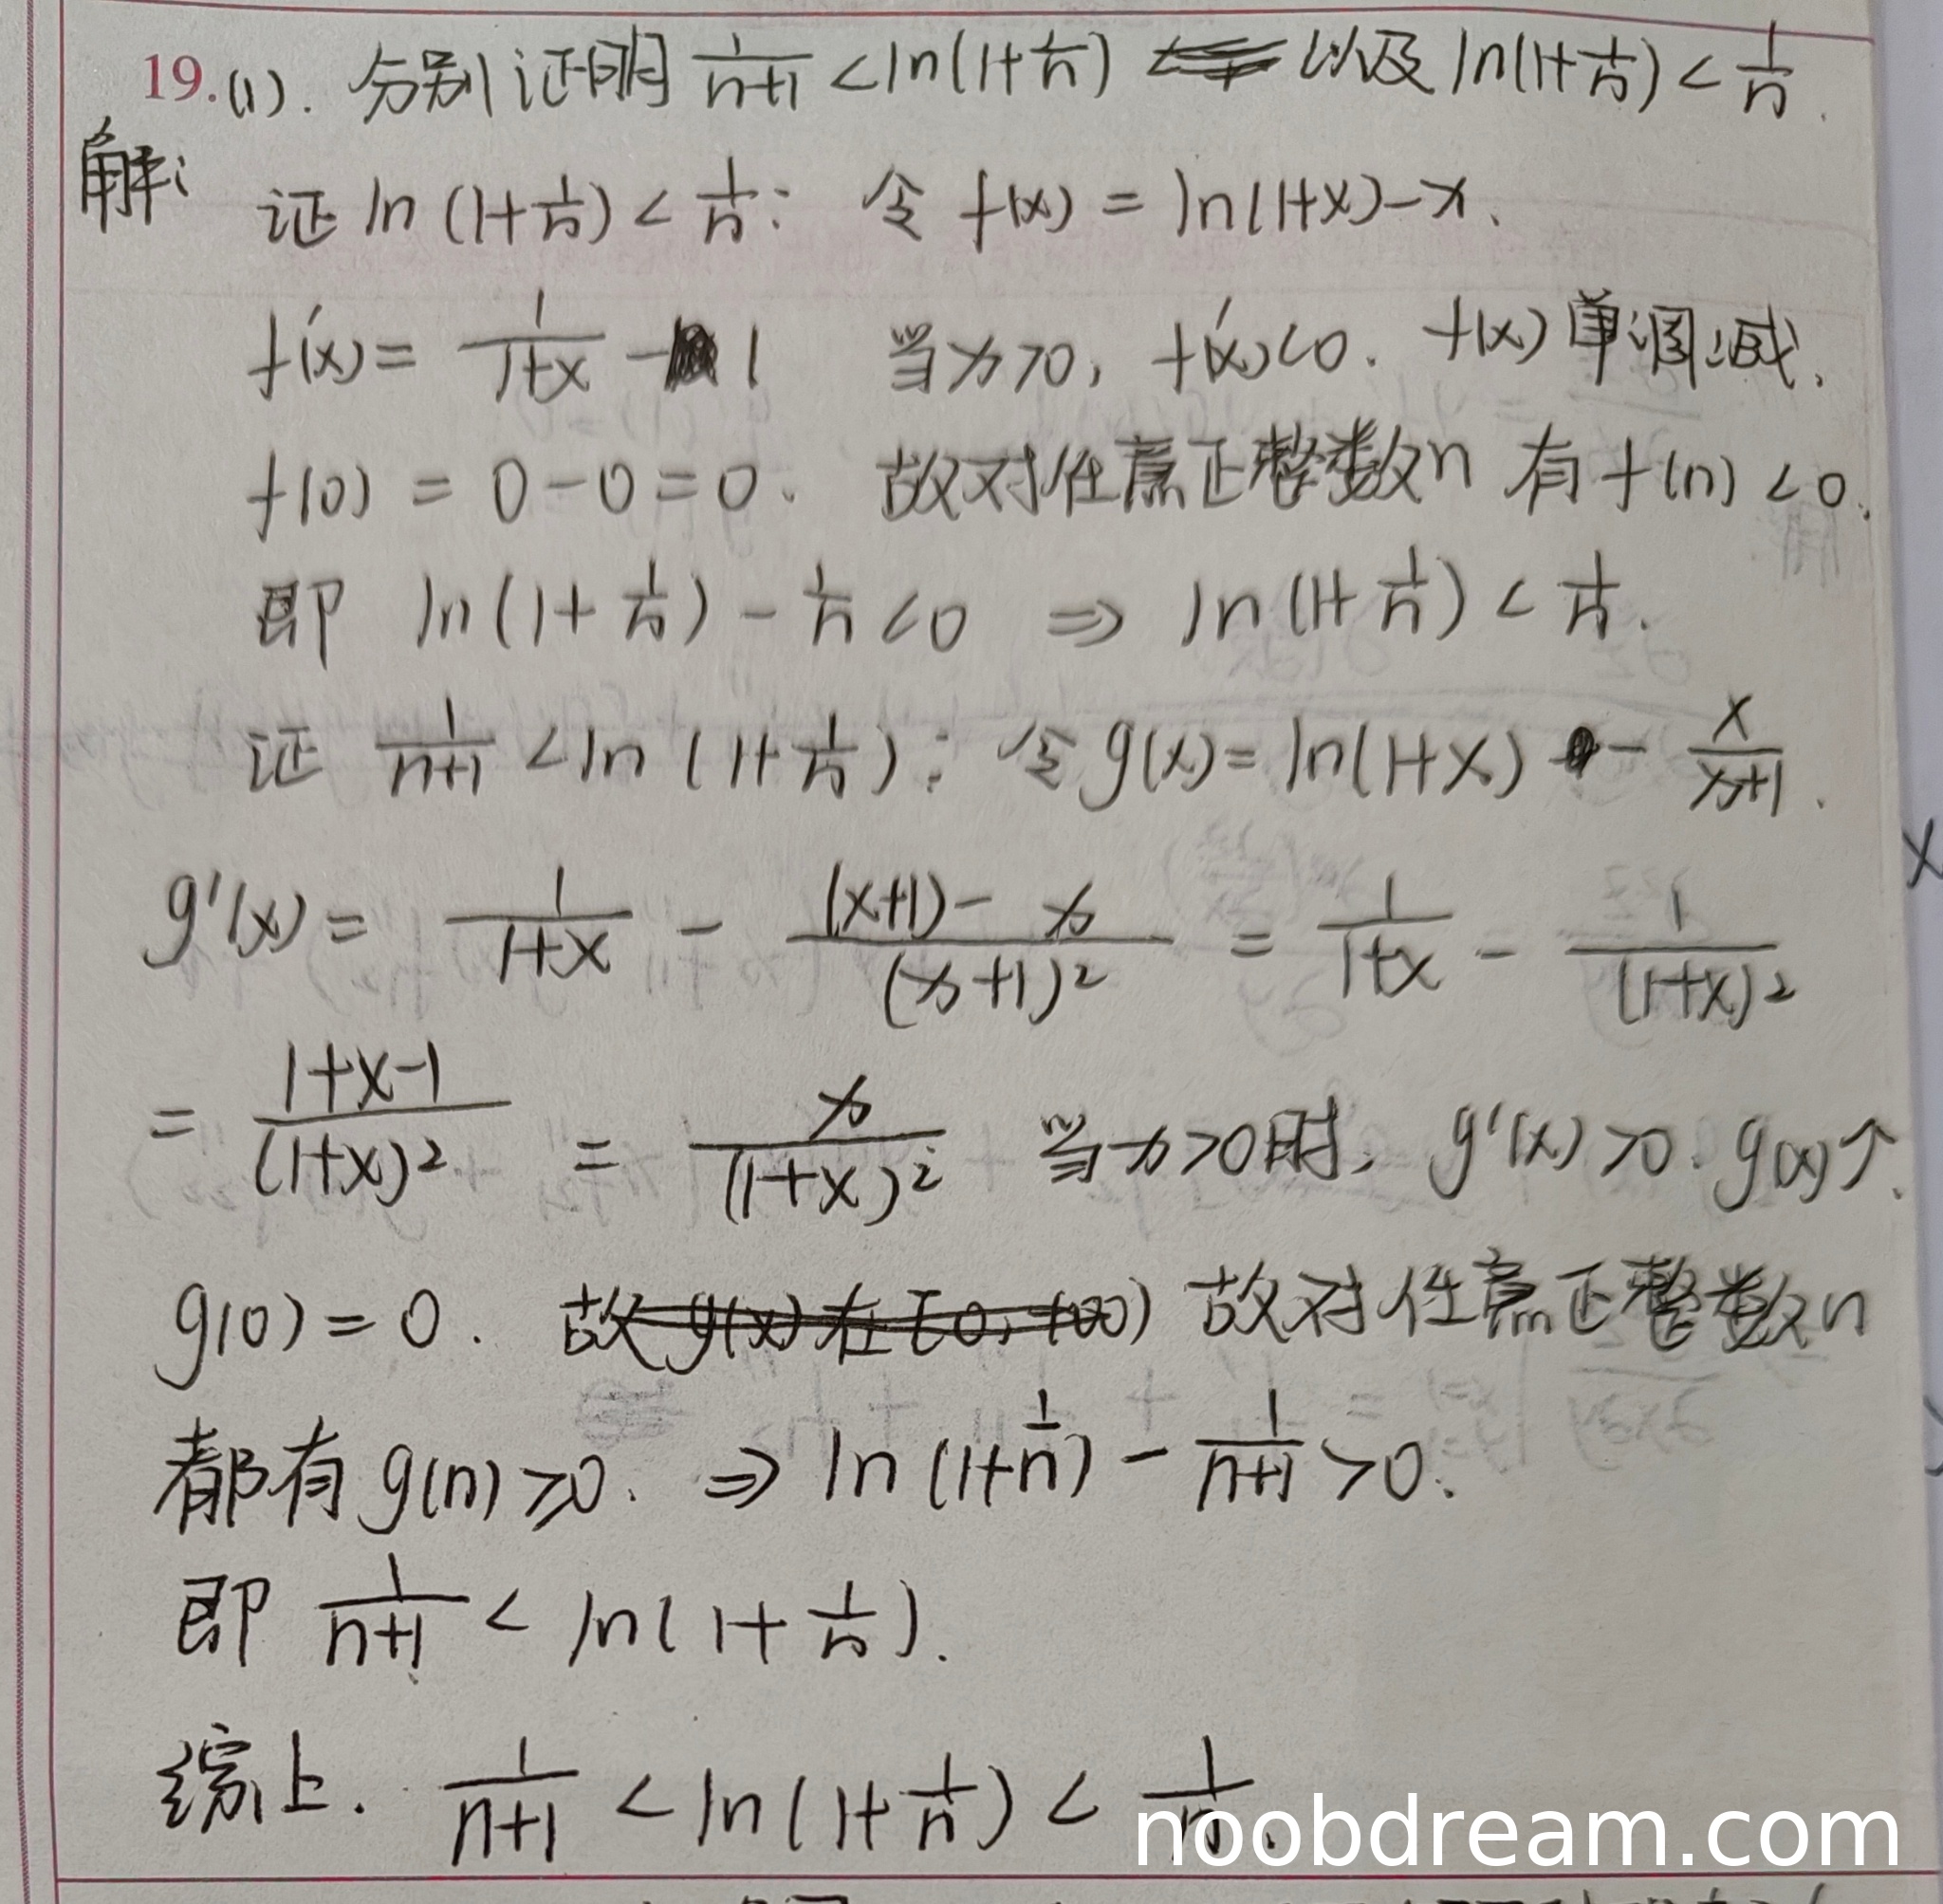 19.(1). 分别证明 1/(n+1) < ln(1+1/n) 以及 ln(1+1/n) < 1/n.
解: 证 ln(1+1/n) < 1/n: 令 f(x) = ln(1+x)-x.
f'(x) = 1/(1+x) - 1 当x>0, f'(x)<0. f(x)单调减.
f(0) = 0-0=0. 故对任意正整数n 有 f(n) <0.
即 ln(1+1/n) - 1/n <0 ⇒ ln(1+1/n) < 1/n.
证 1/(n+1) < ln(1+1/n): 令g(x)= ln(1+x) - x/(x+1).
g'(x) = 1/(1+x) - ((x+1)-x)/(x+1)² = 1/(1+x) - 1/(1+x)²
= (1+x-1)/(1+x)² = x/(1+x)² 当x>0时, g'(x)>0. g(x)↑.
g(0)=0. 故g(x)在[0,+∞) 故对任意正整数n
都有g(n)>0. ⇒ ln(1+1/n) - 1/(n+1) >0.
即 1/(n+1) < ln(1+1/n).
综上. 1/(n+1) < ln(1+1/n) < 1/n.
noobdream.com